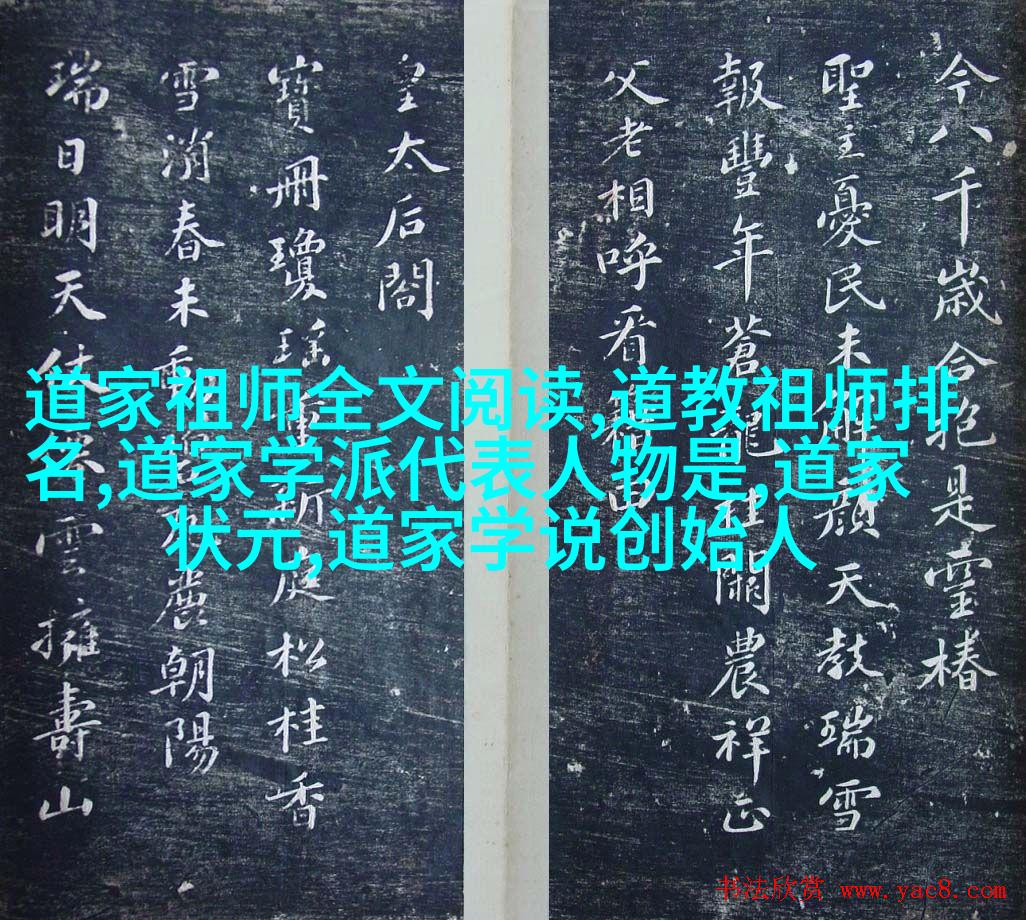 道家祖师全文阅读,道教祖师排
名,道家学派代表人物是,道家
状元,道家学说创始人
今八千歲合抱是靈椿
聖主憂民未解顏天教瑞雪
報豐年蒼龍挂闕農祥正
父老相呼看籍田
皇太后閤
寶冊瓊瑤新庭松桂香
雪消春未動麗朝陽
瑞日明天雲擁壽山
书法欣赏 www.yac8.com